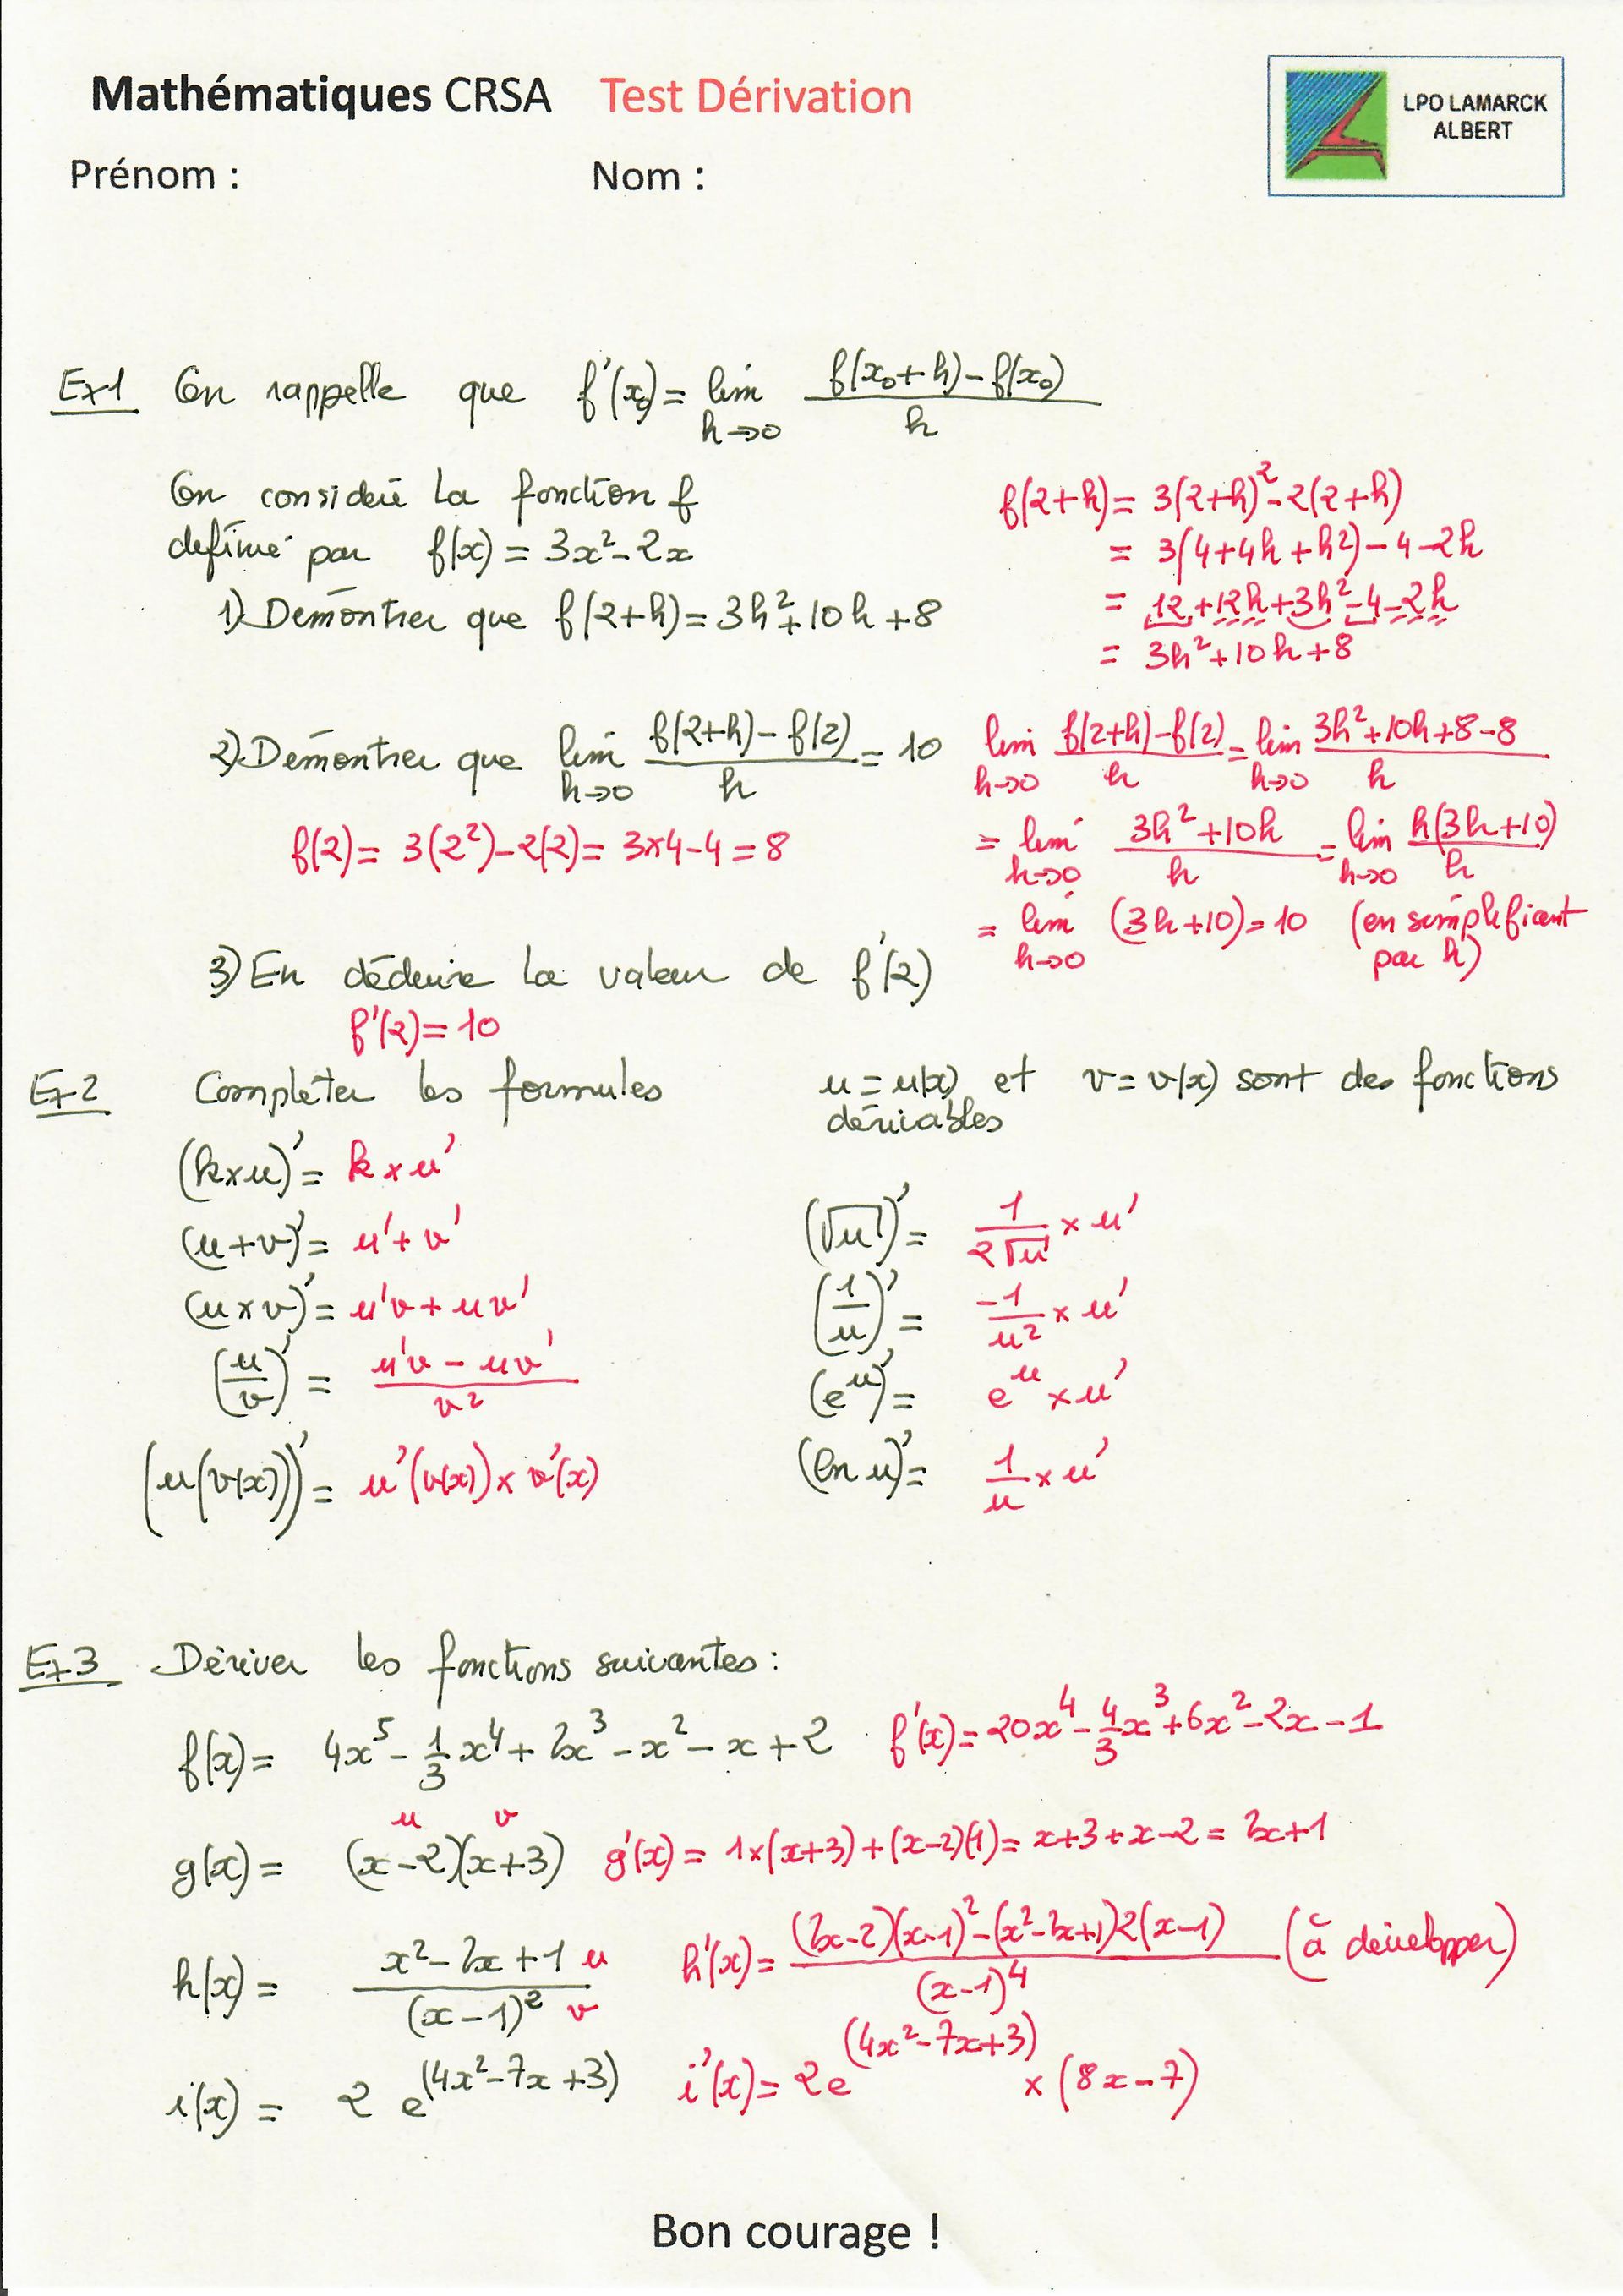 Mathématiques CRSA Test Dérivation
LPO LAMARCK
ALBERT
Prénom : Nom :
Ex1 On rappelle que f'(x₀) = lim h→0 (f(x₀+h)-f(x₀))/h
On considère la fonction f
définie par f(x) = 3x²-2x
1) Démontrer que f(2+h) = 3h²+10h+8
f(2+h) = 3(2+h)²-2(2+h)
= 3(4+4h+h²)-4-2h
= 12+12h+3h²-4-2h
= 3h²+10h+8
2) Démontrer que lim h→0 (f(2+h)-f(2))/h = 10
f(2) = 3(2²)-2(2) = 3×4-4 = 8
lim h→0 (f(2+h)-f(2))/h = lim h→0 (3h²+10h+8-8)/h
= lim h→0 (3h²+10h)/h = lim h→0 h(3h+10)/h
= lim h→0 (3h+10) = 10 (en simplifiant
par h)
3) En déduire la valeur de f'(2)
f'(2) = 10
Ex2 Compléter les formules u = u(x) et v = v(x) sont des fonctions
dérivables
(k×u)' = k×u'
(u+v)' = u'+v'
(u×v)' = u'v+uv'
(u/v)' = (u'v-uv')/v²
(u(v(x)))' = u'(v(x))×v'(x)
(√u)' = 1/(2√u) × u'
(1/u)' = -1/u² × u'
(e^u)' = e^u × u'
(ln u)' = 1/u × u'
Ex3 Dériver les fonctions suivantes :
f(x) = 4x⁵ - 1/3 x⁴ + 2x³ - x² - x + 2 f'(x) = 20x⁴ - 4/3 x³ + 6x² - 2x - 1
u v
g(x) = (x-2)(x+3) g'(x) = 1×(x+3)+(x-2)(1) = x+3+x-2 = 2x+1
h(x) = (x²-2x+1)/(x-1)² u v h'(x) = ((2x-2)(x-1)²-(x²-2x+1)2(x-1))/(x-1)⁴ (à développer)
i(x) = 2 e^(4x²-7x+3) i'(x) = 2e^(4x²-7x+3) × (8x-7)
Bon courage !